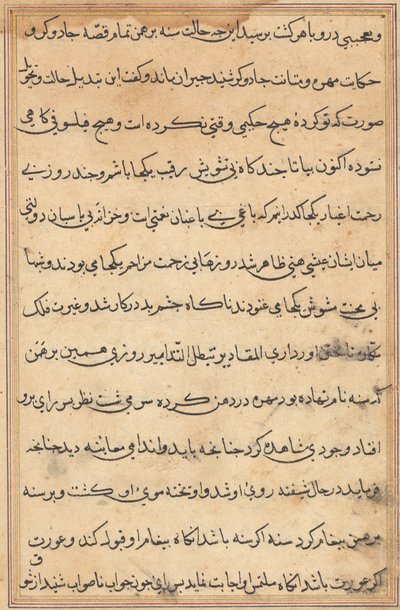 و بعجبی درو باهر گشت پرسید این چه حالتست برهمن تمام قصه جادوگر و
حکایت مهره و بتات جادوگر شنید حیران ماند و گفت این تبدیل حالت و تحویل
صورت که تو کردهٔ هیچ حکیمی وقتی نکرده است و هیچ فیلسوفی گاهی
نتوده اکنون بیا تا چند گاه بی تشویش رقیب یکجا باشم و چند روز بی
زحمت اغیار یکجا گذرانیم که باغی بی باغبان نعمتی است و خزانه بی پاسبان دولتی
میان ایشان عیشی هنی ظاهر شد روزها بی زحمت مزاحم یکجا می بودند و شبها
بی محنت مشوش یکجا می غنودند ناگاه چشم بد در کار شد و غیرت فلک
اورداری المقادیر تبطل التدابیر روزی همین برهمن
که سنه نام نهاده بود مهره در دهن کرده سر می شست نظر پسر رای برو
افتاد وجودی مشاهده کرد چنانچه باید و اندامی معاینه دید چنانچه
فرماید در حال شیفته روی او شد و آوتخته موی او گشت و بر سنه
برهمن پیغام کرد سنه اگر سنه باشد آنگاه پیغام او قبول کند و عورت
اگر عورت باشد آنگاه ملتمس اجابت فاید پسر رای چون جواب ناصواب شنید از تو
ق